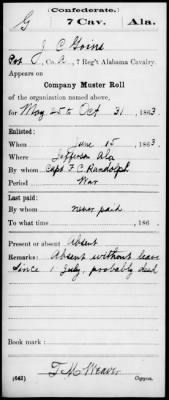 (Confederate.)
G 7 Cav. Ala.
J C Goins
Pvt, Co. A, 7 Reg't Alabama Cavalry.
Appears on
Company Muster Roll
of the organization named above,
for May 25 to Oct 31, 1863.
Enlisted:
When June 15, 1863.
Where Jefferson Ala
By whom Capt. F. C. Randolph
Period War
Last paid:
By whom never paid
To what time , 186
Present or absent Absent
Remarks: Absent without leave
since 1 July, probably dead
Book mark:
T. M. Weaver
(642) Copyist.